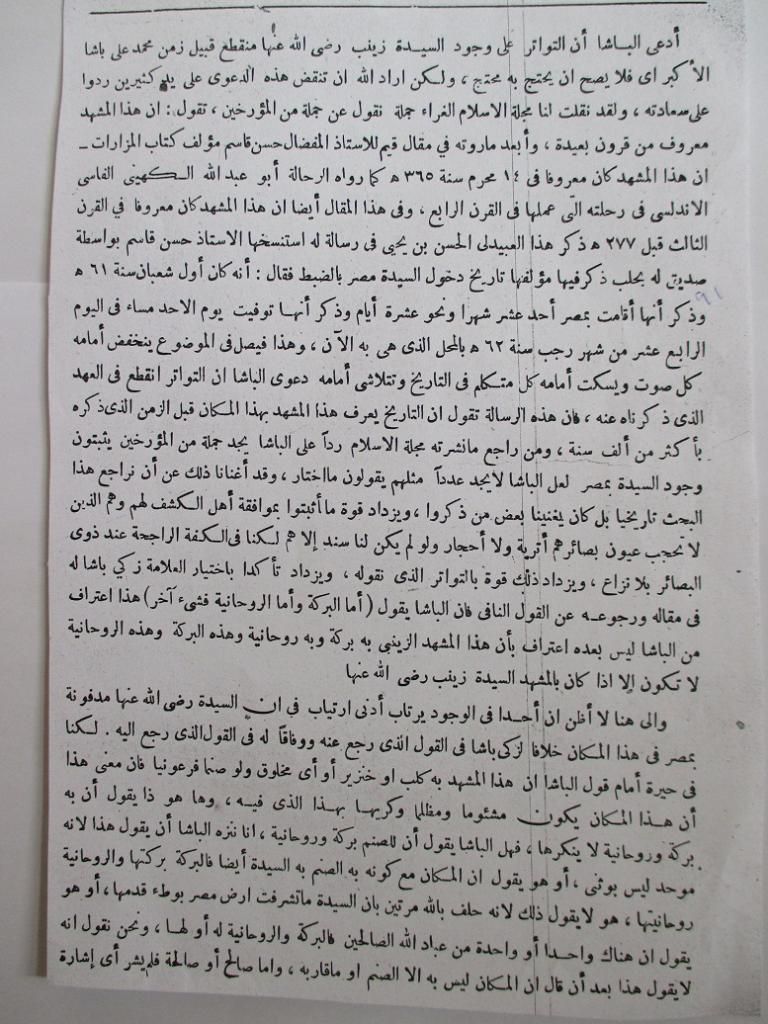 أدعى الباشا أن التواتر على وجود السيدة زينب رضى الله عنها منقطع قبيل زمن محمد على باشا
الأكبر اى فلا يصح ان يحتج به محتج ، ولكن اراد الله ان تنقض هذه الدعوى على يد كثيرين ردوا
على سعادته ، ولقد نقلت انا مجلة الاسلام الغراء جملة نقول عن جملة من المؤرخين ، تقول : ان هذا المشهد
معروف من قرون بعيدة ، وأبعد ماروته فى مقال قيم للاستاذ المفضال حسن قاسم مؤلف كتاب المزارات ــ
ان هذا المشهد كان معروفا فى ١٤ محرم سنة ٣٦٥ ه كما رواه الرحالة أبو عبد الله الكهينى الفاسى
الاندلسى فى رحلته التى عملها فى القرن الرابع ، وفى هذا المقال أيضا ان هذا المشهد كان معروفا في القرن
الثالث قبل ٢٧٧ ه ذكر هذا العبيدلى الحسن بن يحيى فى رسالة له استنسخها الاستاذ حسن قاسم بواسطة
صديق له بحلب ذكر فيها مؤلفها تاريخ دخول السيدة مصر بالضبط فقال : أنه كان أول شعبان سنة ٦١ ه
٩١
وذكر أنها أقامت بمصر أحد عشر شهرا ونحو عشرة أيام وذكر أنها توفيت يوم الاحد مساء فى اليوم
الرابع عشر من شهر رجب سنة ٦٢ ه بالمحل الذى هى به الآن ، وهذا فيصل فى الموضوع ينخفض أمامه
كل صوت ويسكت أمامه كل متكلم فى التاريخ وتتلاشى أمامه دعوى الباشا ان التواتر انقطع فى العهد
الذى ذكرناه عنه ، فان هذه الرسالة تقول ان التاريخ يعرف هذا المشهد بهذا المكان قبل الزمن الذى ذكره
بأكثر من ألف سنة ، ومن راجع مانشرته مجلة الاسلام رداً على الباشا يجد جملة من المؤرخين يثبتون
وجود السيدة بمصر لعل الباشا لايجد عدداً مثلهم يقولون مااختار ، وقد أغنانا ذلك عن أن نراجع هذا
البحث تاريخيا بل كان يغنينا بعض من ذكروا ، ويزداد قوة ما أثبتوا بموافقة أهل الكشف لهم وهم الذين
لا تحجب عيون بصائرهم أتربة ولا أحجار ولو لم يكن لنا سند إلا هم لكنا فى الكفة الراجحة عند ذوى
البصائر بلا نزاع ، ويزداد ذلك قوة بالتواتر الذى نقوله ، ويزداد تأكدا باختيار العلامة زكي باشا له
فى مقاله ورجوعه عن القول النافى فان الباشا يقول ( أما البركة وأما الروحانية فشىء آخر ) هذا اعتراف
من الباشا ليس بعده اعتراف بأن هذا المشهد الزينبي به بركة وبه روحانية وهذه البركة وهذه الروحانية
لا تكون إلا اذا كان بالمشهد السيدة زينب رضى الله عنها
والى هنا لا أظن ان أحدا فى الوجود يرتاب أدنى ارتياب في ان السيدة رضى الله عنها مدفونة
بمصر فى هذا المكان خلافا لزكى باشا فى القول الذى رجع عنه ووفاقا له فى القول الذى رجع اليه . لكننا
فى حيرة أمام قول الباشا ان هذا المشهد به كلب او خنزير أو أى مخلوق ولو صنما فرعونيا فان معنى هذا
أن هذا المكان يكون مشئوما ومظلما وكريها بهذا الذى فيه ، وها هو ذا يقول أن به
بركة وروحانية لا ينكرها ، فهل الباشا يقول أن للصنم بركة وروحانية ، انا ننزه الباشا أن يقول هذا لانه
موحد ليس بوثنى ، أو هو يقول ان المكان مع كونه به الصنم به السيدة أيضا فالبركة بركتها والروحانية
روحانيتها ، هو لايقول ذلك لانه حلف بالله مرتين بان السيدة ماتشرفت ارض مصر بوطء قدمها ، أو هو
يقول ان هناك واحدا أو واحدة من عباد الله الصالحين فالبركة والروحانية له أو لها ، ونحن نقول انه
لايقول هذا بعد أن قال ان المكان ليس به الا الصنم او ماقاربه ، واما صالح أو صالحة فلم يشر أى إشارة